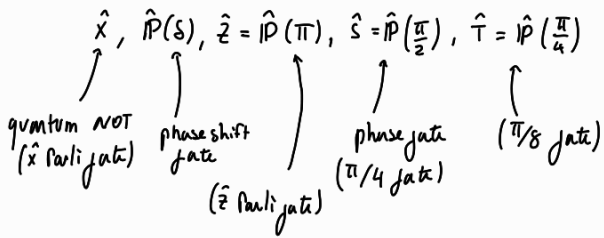 X̂, P̂(δ), Ẑ = P̂(π), Ŝ = P̂(π/2), T̂ = P̂(π/4)
quantum NOT
(X̂ Pauli gate)
phase shift
gate
(Ẑ Pauli gate)
phase gate
(π/4 gate)
(π/8 gate)